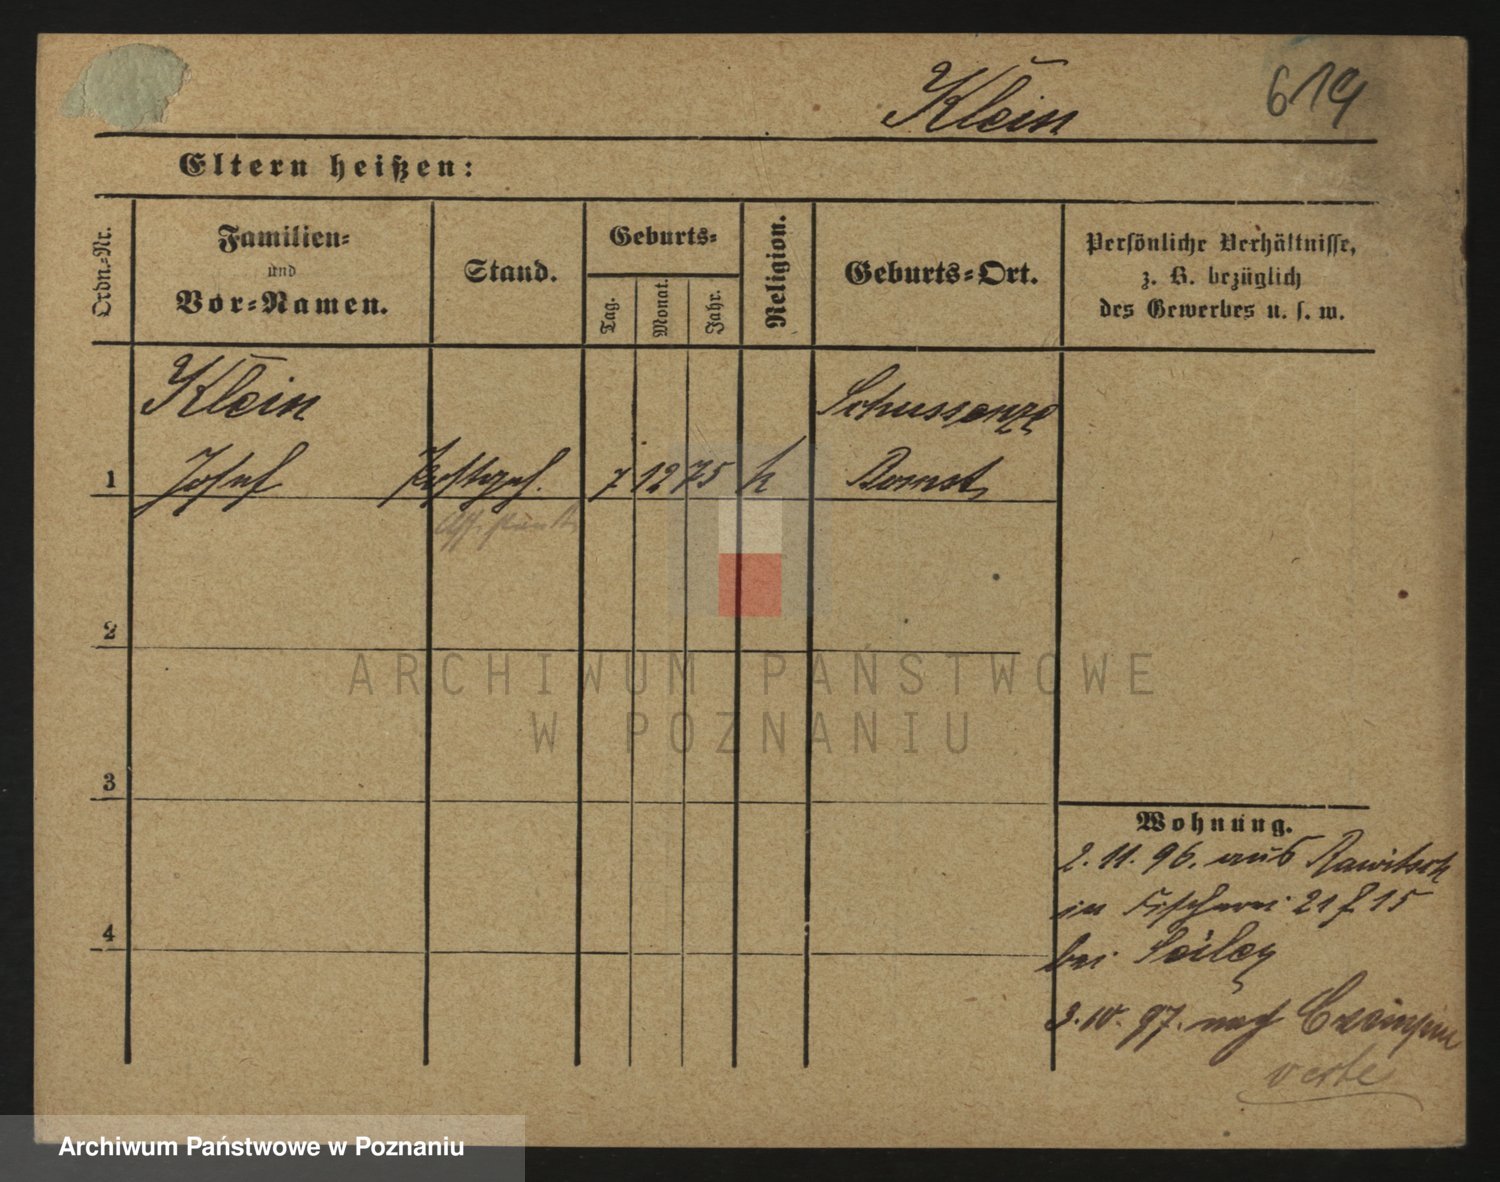 Klein 619
Eltern heißen:
Ordn.-Nr.
Familien-
und
Vor-Namen.
Stand.
Geburts-
Tag.
Monat.
Jahr.
Religion.
Geburts-Ort.
Persönliche Verhältnisse,
z. B. bezüglich
des Gewerbes u. s. w.
Klein Schussenze
1 Josef Postgeh. 7 12 75 k Bomst
2
3
4
Wohnung.
2. 11. 96. aus Rawitsch
in Fischerei 21 f 15
bei
3. 10. 97. nach Czempin
verte
ARCHIWUM PAŃSTWOWE
W POZNANIU
Archiwum Państwowe w Poznaniu